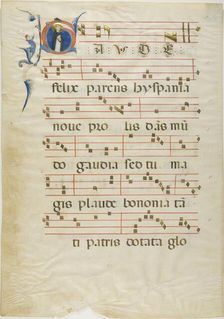 GAVDE
felix parens hyspania
noue pro lis dās mū
do gaudia sed tu ma
gis plaude bononia tā
ti patris dotata glo